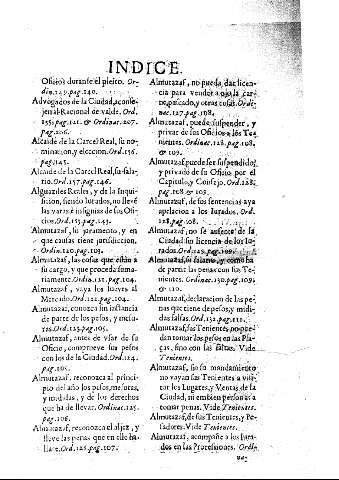 INDICE.
Oficios durante el pleito. Or-
din.149.pag.140.
Advogados de la Ciudad, aconse-
jen al Racional de valde. Ord.
155.pag.121. & Ordinac.207.
pag.206.
Alcaide de la Carcel Real, su no-
minacion, y eleccion. Ord.156.
pag.145.
Alcaide de la Carcel Real, su sala-
rio. Ord.157.pag.146.
Alguaziles Reales, y de la Inqui-
sicion, siendo Jurados, no lleve
las varas è insignias de sus Ofi-
cios. Ord.153.pag.143.
Almutazaf, su juramento, y en
que causas tiene jurisdiccion,
Ordin.120.pag.103.
Almutazaf, las cosas que estàn a
su cargo, y que proceda suma-
riamente. Ordin.121.pag.104.
Almutazaf, vaya los Jueves al
Mercado. Ord.122.pag.104.
Almutazaf, conozca sin instancia
de parte de los pesos, y mesu-
ras. Ord.123.pag.105.
Almutazaf, antes de vsar de su
Oficio, comprueve sus pesos
con los de la Ciudad. Ord.124.
pag.105.
Almutazaf, reconozca al princi-
pio del año los pesos, mesuras,
y medidas, y de los derechos
que ha de llevar. Ordinac.125.
pag.106.
Almutazaf, reconozca el aljez, y
lleve las penas que en elle ha-
llare. Ord.126.pag.107.
Almutazaf, no pueda dar licen-
cia para vender a ojo la car-
ne, pescado, y otras cosas. Ordi-
nac.127.pag.108.
Almutazaf, puede suspender, y
privar de sus Oficios a los Te-
nientes. Ordinac.128.pag.108.
& 109.
Almutazaf puede ser suspendido,
y privado de su Oficio por el
Capitulo, y Consejo. Ord.128.
pag.108.
Almutazaf, de sus sentencias aya
apelacion a los Jurados. Ord.
128.pag.108.
Almutazaf, no se ausente de la
Ciudad sin licencia de los Ju-
rados. Ord.129.pag.109.
Almutazaf, su salario, y como ha
de partir las penas con sus Te-
nientes. Ordinac.130.pag.109.
& 110.
Almutazaf, declaracion de las pe-
nas que tiene de pesos, y medi-
das falsas. Ord.132.pag.110.
Almutazaf, sus Tenientes, no pue-
dan tomar los pesos en las Pla-
ças, sino con las faltas. Vide
Tenientes.
Almutazaf, so su mandamiento
no vayan sus Tenientes a visi-
tar los Lugares, y Ventas de la
Ciudad, ni embien personas a
tomar penas. Vide Tenientes.
Almutazaf, de sus Tenientes, y Pe-
sadores. Vide Tenientes.
Almutazaf, acompañe a los Jura-
dos en las Processiones. Ordin.